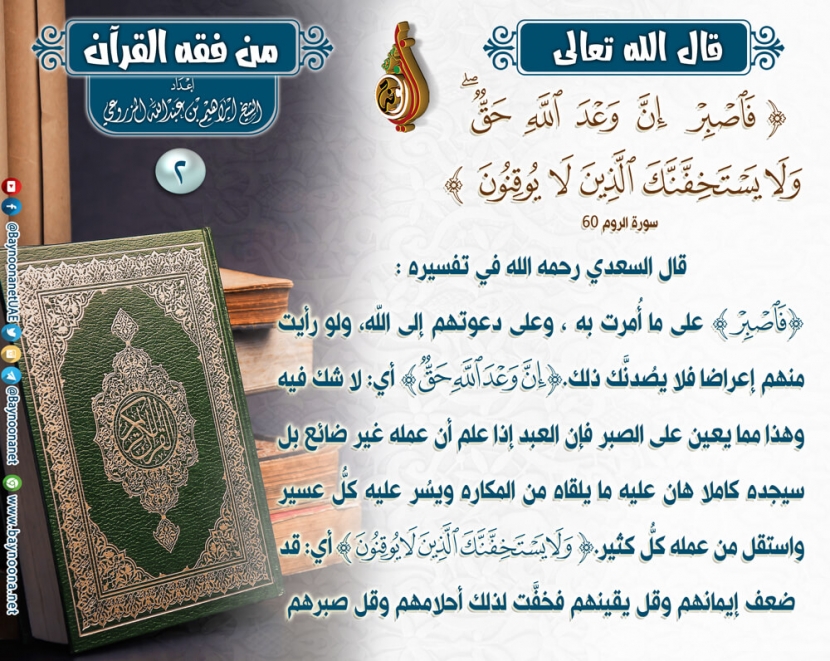 قال الله تعالى
من فقه القرآن
إعداد
الشيخ ابراهيم بن عبدالله المزروعي
٢
﴿ فَٱصْبِرْ إِنَّ وَعْدَ ٱللَّهِ حَقٌّ ۖ
وَلَا يَسْتَخِفَّنَّكَ ٱلَّذِينَ لَا يُوقِنُونَ ﴾
سورة الروم 60
قال السعدي رحمه الله في تفسيره :
﴿فَٱصْبِرْ﴾ على ما أُمرت به ، وعلى دعوتهم إلى الله، ولو رأيت
منهم إعراضا فلا يصُدنَّك ذلك.﴿إِنَّ وَعْدَ ٱللَّهِ حَقٌّ﴾ أي: لا شك فيه
وهذا مما يعين على الصبر فإن العبد إذا علم أن عمله غير ضائع بل
سيجده كاملا هان عليه ما يلقاه من المكاره ويسُر عليه كلُّ عسير
واستقل من عمله كلُّ كثير.﴿ وَلَا يَسْتَخِفَّنَّكَ ٱلَّذِينَ لَا يُوقِنُونَ ﴾ أي: قد
ضعف إيمانهم وقل يقينهم فخفَّت لذلك أحلامهم وقل صبرهم
القرآن الكريم
@BaynoonanetUAE
@Baynoonanet
www.baynoona.net